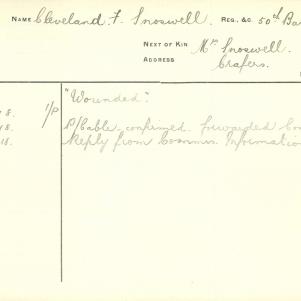 NAME Cleveland F. Snoswell. REG. &C. 50th Ba
NEXT OF KIN Mr. Snoswell.
ADDRESS Crafers.
"Wounded".
8. 1/P P/Cable confirmed. forwarded
18. Reply from Commrs. Information